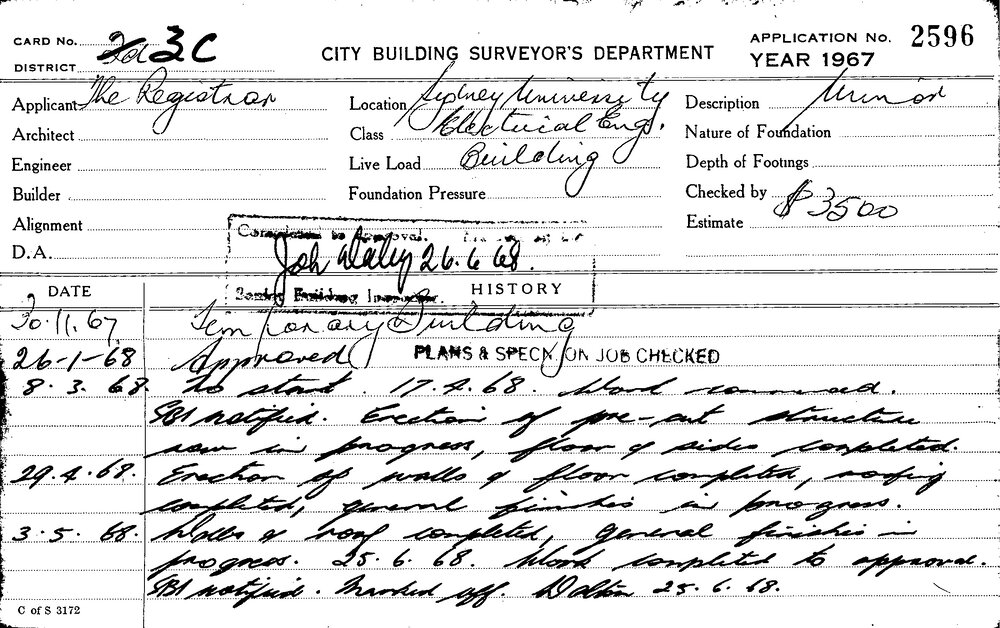 CARD No. 2d 3C
CITY BUILDING SURVEYOR'S DEPARTMENT
APPLICATION No. 2596
DISTRICT
YEAR 1967
Applicant The Registrar
Location Sydney University
Description Minor
Architect
Class Electrical Eng.
Nature of Foundation
Engineer
Live Load Building
Depth of Footings
Builder
Foundation Pressure
Checked by
Alignment
Estimate $3500
D.A.
Completed to Approval.
26.6.68.
Senior Building Inspector.
DATE
HISTORY
30.11.67 Temporary Building
26-1-68 Approved PLANS & SPECN. ON JOB CHECKED
8.3.68. No start. 17.4.68. Work commenced.
SBI notified. Erection of pre-cut structure
now in progress, floor & sides completed.
29.4.68. Erection of walls & floor completed, roofing
completed, general finishes in progress.
3.5.68. Walls & roof completed, general finishes in
progress. 25.6.68. Work completed to approval.
SBI notified. Marked off. Dalton 25.6.68.
C of S 3172